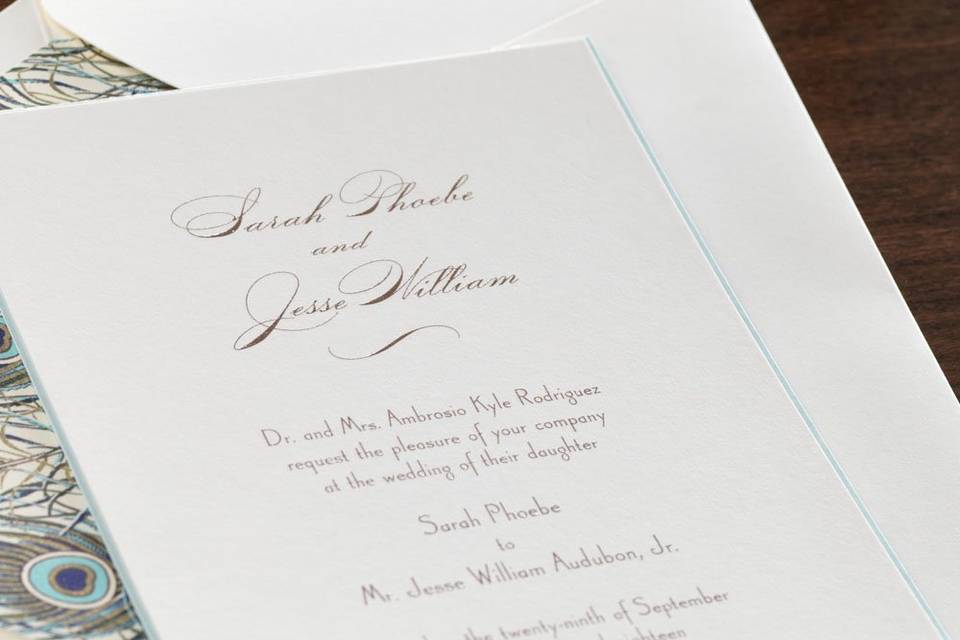 Sarah Phoebe
and
Jesse William
Dr. and Mrs. Ambrosio Kyle Rodriguez
request the pleasure of your company
at the wedding of their daughter
Sarah Phoebe
to
Mr. Jesse William Audubon, Jr.
the twenty-ninth of September